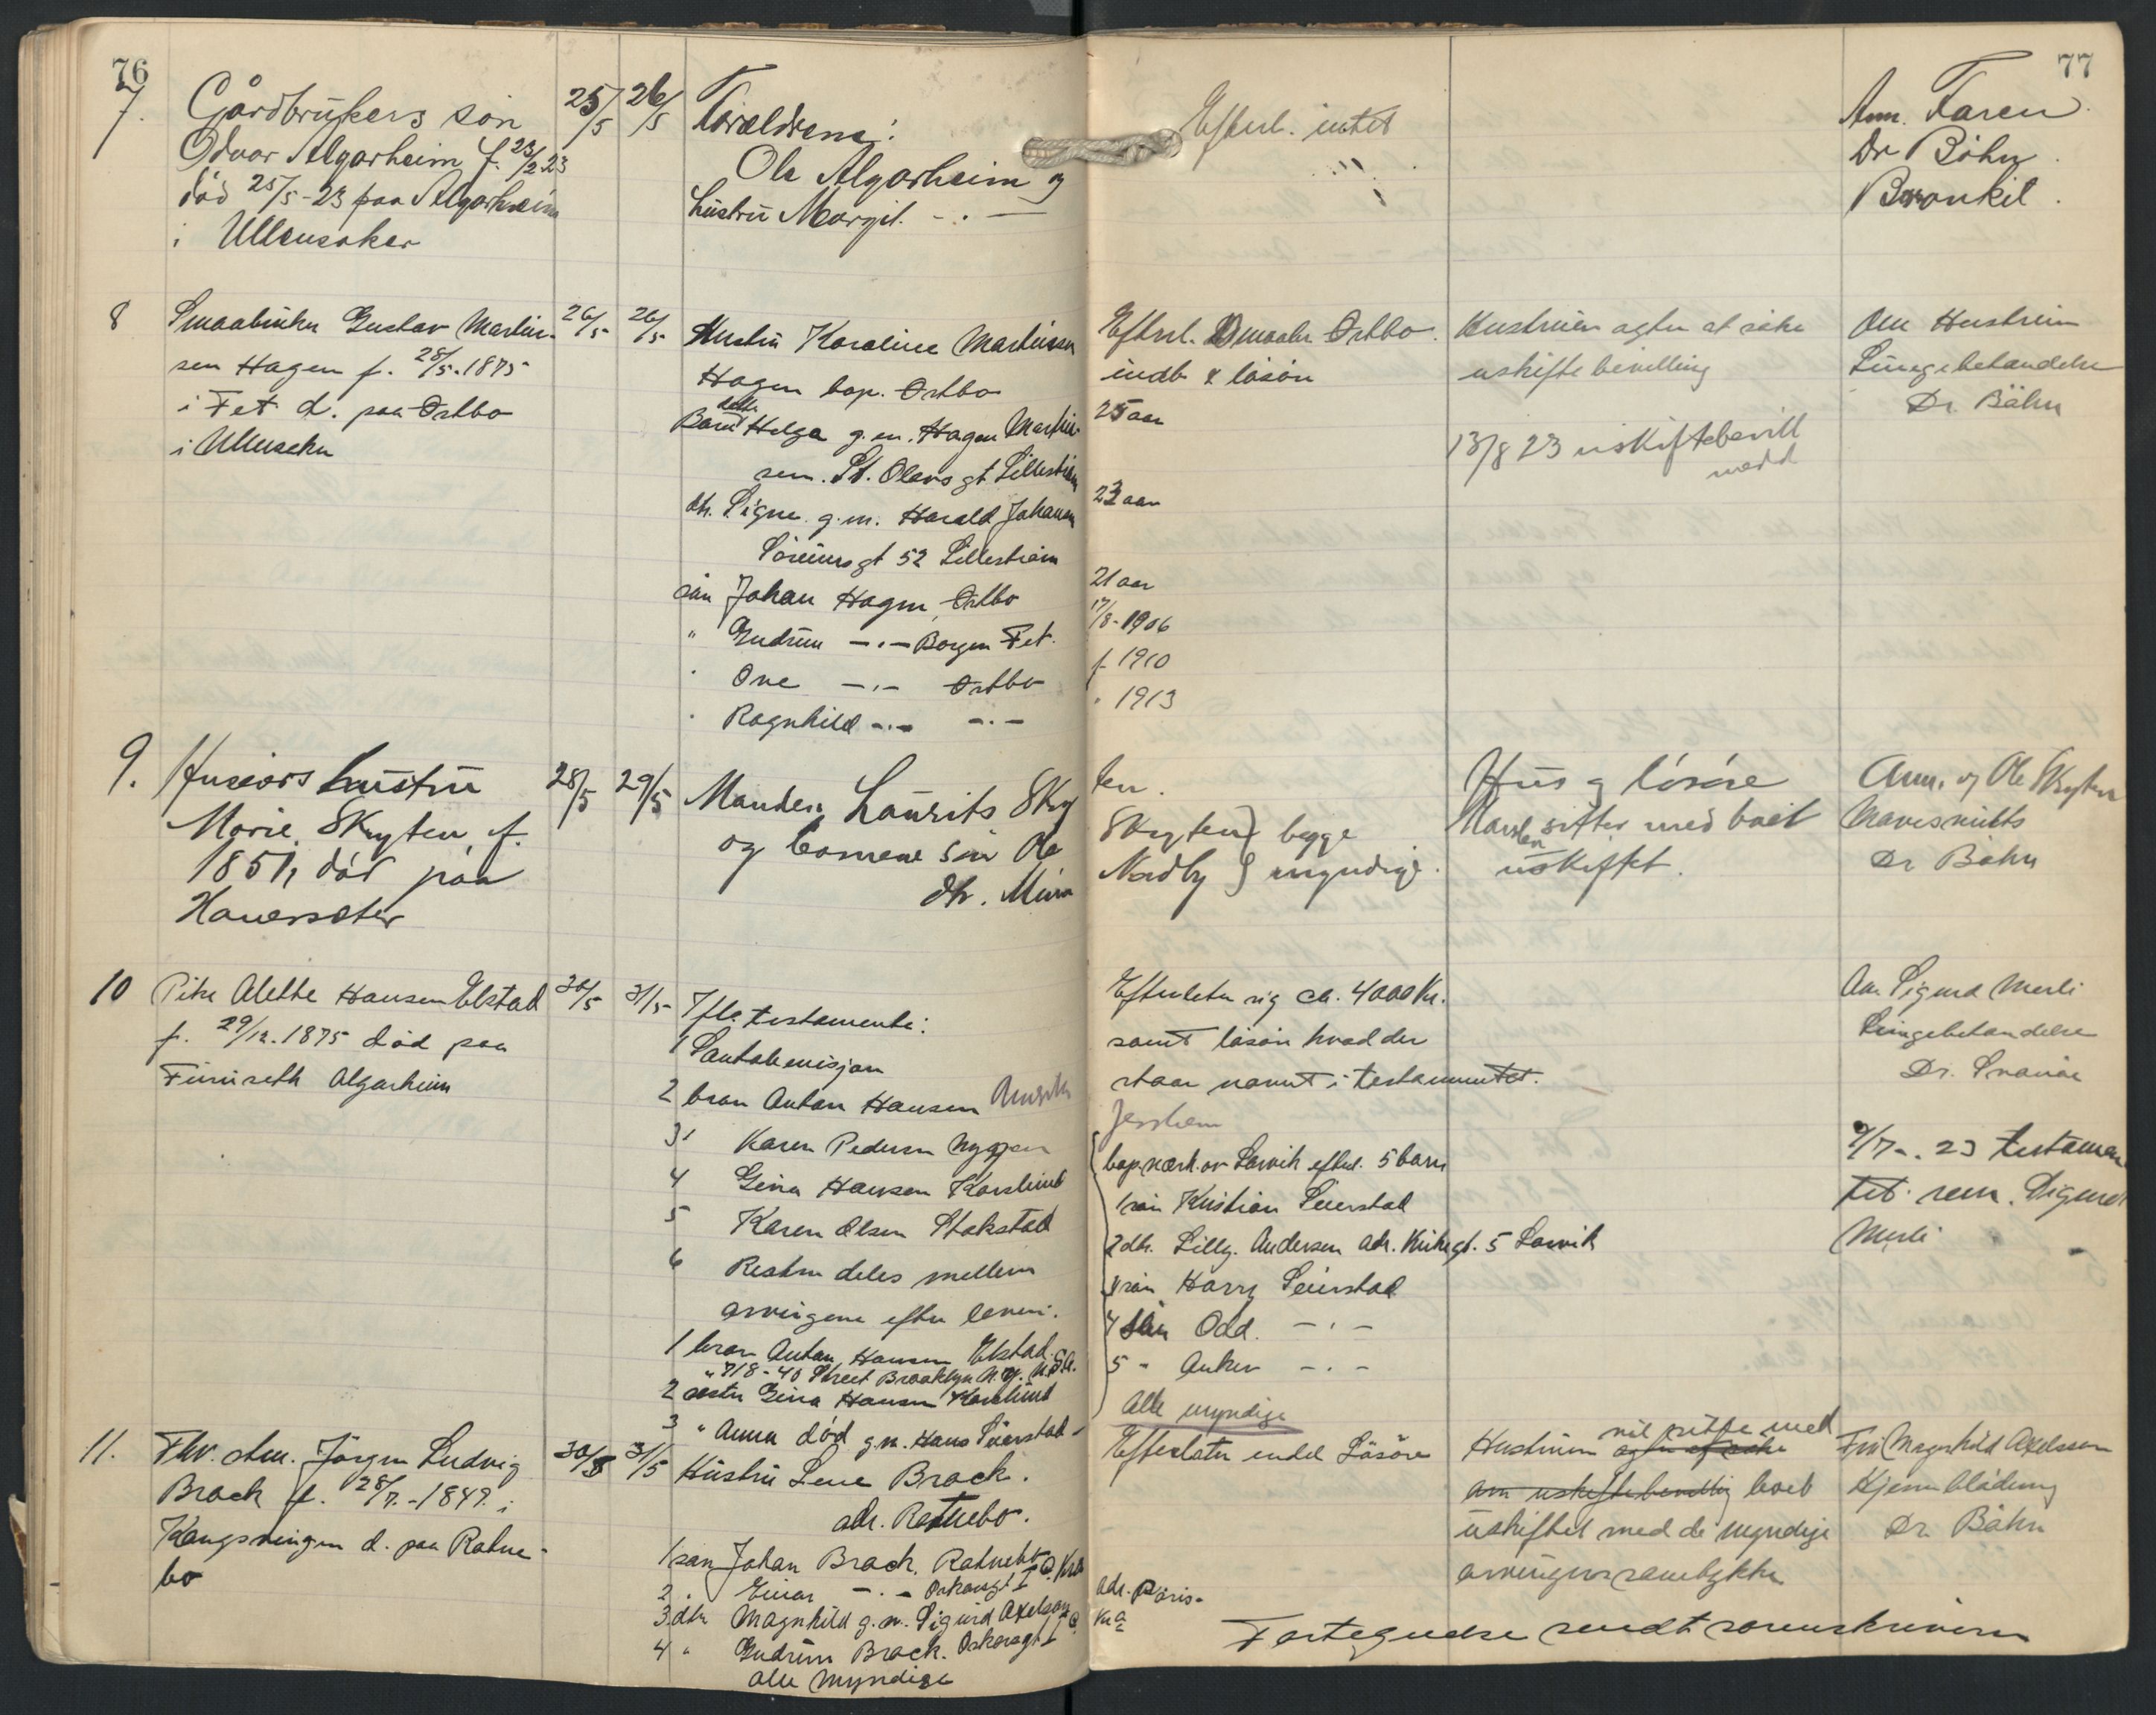 76
7. Gårdbrukers sön
Odvar Algarheim f. 23/2 23
död 25/5-23 paa Algarheim
i Ullensaker
25/5 26/5
Foreldrene:
Ole Algarheim og
hustru Margit -.-
8 Smaabruker Gustav Martin-
sen Hagen f. 28/5.1875
i Fet d. paa Ostbo
i Ullensaker
26/5 26/5
Hustru Karoline Martinsen
Hagen bop. Ostbo
Barn datter Helga g.m. Hagen Martin-
sen. St. Olavs gt Lilleström
dtr. Signe g.m. Harald Johansen
gt 52 Lilleström
sön Johan Hagen, Ostbo
" Gudrun -.- Borgen Fet.
" Ove -.- Ostbo
" Ragnhild -.- -.-
9. Husejers hustru
Marie Skryten f.
1851, död paa
Hauersæter
28/5 29/5
Manden Laurits Skry
og barnene sön Ole
dtr. Mina
10 Pike Alette Hansen Elstad
f. 29/12.1875 död paa
Furuseth Algarheim
30/5 31/5
Ifla. testamente:
1 Santalmisjon
2 bror Anton Hansen Amerika
3 " Karen Pedersen Nygaren
4 Gina Hansen Karslund
5 Karen Olsen Stokstad
6 Resten deles mellem
arvingene efter loven:
1 bror Anton Hansen Elstad
" 718-40 Street Brooklyn N.Y. U.S.A.
2 søster Gina Hansen Karslund
3 " Anna död g.m. Hans Seierstad
11. Fhv. Jørgen Ludvig
Brock f. 28/7.-1849 i
Kongsvingen d. paa Ratne-
bo
30/5 31/5
Hustru Lene Brock.
adr. Ratnebo.
1 sön Johan Brock, Ratnebo
2 " Einar -.- Oskarsgt I
3. dtr Magnhild g.m. Sigurd Axelson
4 " Gudrun Brock. Oskarsgt I
alle myndige
77
Efterl. intet
Anm. Faren
Dr Böhn
Bronkit.
Efterl. Ostbo
indb & lösöre
25 aar
23 aar
21 aar
17/8-1906
f. 1910
" 1913
Hustruen agter at söke
uskifte bevilling
13/8 23 uskiftebevill
medd
Am Hustruen
Lungebetændelse
Dr. Böhn
ten.
Skryten } begge
Nordby } myndige.
Hus og lösöre
Manden sitter med boet
uskiftet.
Anm. og Ole Skryten
Navesnitts
Dr Böhn
Efterlater sig ca. 4000 Kr.
samt lösöre hvad der
staar nævnt i testamentet.
Jessheim
bop. nærh. av Larvik efterl. 5 barn
1 sön Kristian Seierstad
2 dtr. Lilly Andersen adr. Kirkegt. 5 Larvik
3 sön Harry Seierstad
4 sön Odd. -.-
5 " Anker -.-
Alle myndige
Am Sigurd Merli
Lungebetændelse
Dr.
9/7-.23 testamen
tet sen. Sigurd
Merli
Efterlater endel Lösöre
adr. Paris-
Hustruen agter at söke vil sitte med
om uskiftebevilling boet
uskiftet med de myndige
arvingers samtykke
Fru Magnhild Axelsson
Hjerneblödning
Dr. Böhn
Fortegnelse sendt sorenskriveren